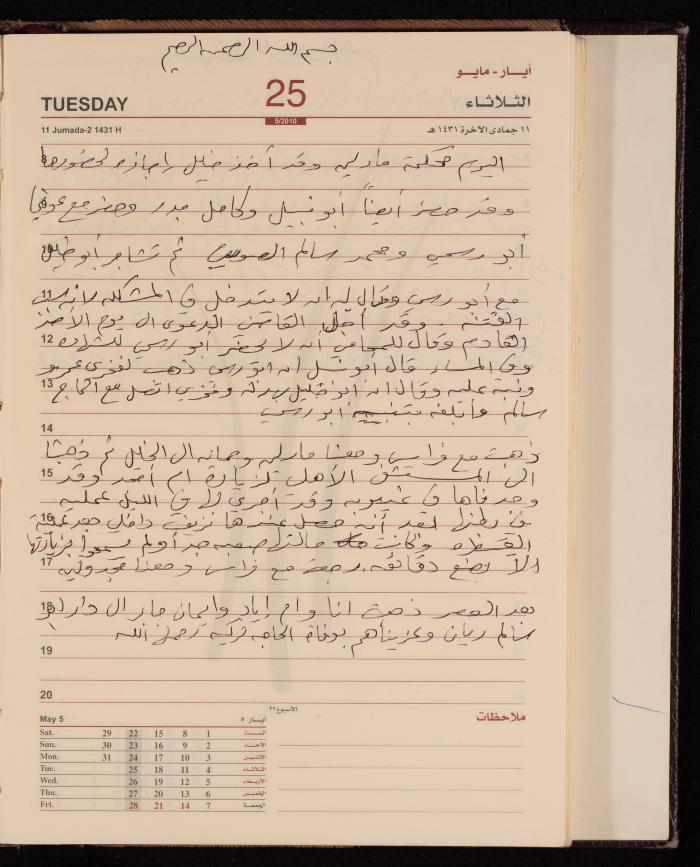 بسم الله الرحمن الرحيم
أيـار - مايـو
TUESDAY 25 الثـلاثـاء
5/2010
11 Jumada-2 1431 H ١١ جمادى الآخرة ١٤٣١ هـ
اليوم محكمة مارلين وقد أخذ خليل إجازه لحضورها
وقد حضر أيضاً أبو نبيل وكامل بدر وحضر مع عوني
أبو رسمي ومحمد سالم ثم تشاجر أبو خليل
11 مع أبو رسمي وقال له انه لا يتدخل في المشكله لانه
الفتنه. وقد أجل القاضي الدعوى الى يوم الأحد
12 القادم وقال للمحامي أن لا يحضر أبو رسمي للشهاده
وفي المساء قال أبو نبيل ان ابو رسمي ذهب لفوزي عمرو
13 وقال ان ابو خليل وفوزي اتصل مع الحاج
سالم وأبلغه أبو رسمي
14
ذهبت مع فراس ومعنا مارلين وجمانه الى الخليل ثم ذهبنا
15 الى المستشفى الأهلي لزيارة ام أحمد وقد
وجدناها في غيبوبه وقد أجري لها في الليل عمليه
16 في بطنها بعد أنه حصل عندها نزيف داخلي بعد عملية
القسطره وكانت حالتها صعبه جدا ولم يسمحوا بزيارتها
17 الا بضع دقائق. رجعت مع فراس ومعنا مجدولين
18 بعد العصر ذهبت انا وام اياد وايمان جابر الى دار ابو
سالم ريان وعزيناهم بوفاة الحاجه تركيه رحمها الله
19
20
ملاحظات
الأسبوع ٢٢
May 5 أيـار ٥
Sat. 29 22 15 8 1 السبت
Sun. 30 23 16 9 2 الأحـد
Mon. 31 24 17 10 3 الاثنين
Tue. 25 18 11 4 الثلاثاء
Wed. 26 19 12 5 الأربعاء
Thu. 27 20 13 6 الخميس
Fri. 28 21 14 7 الجمعـة